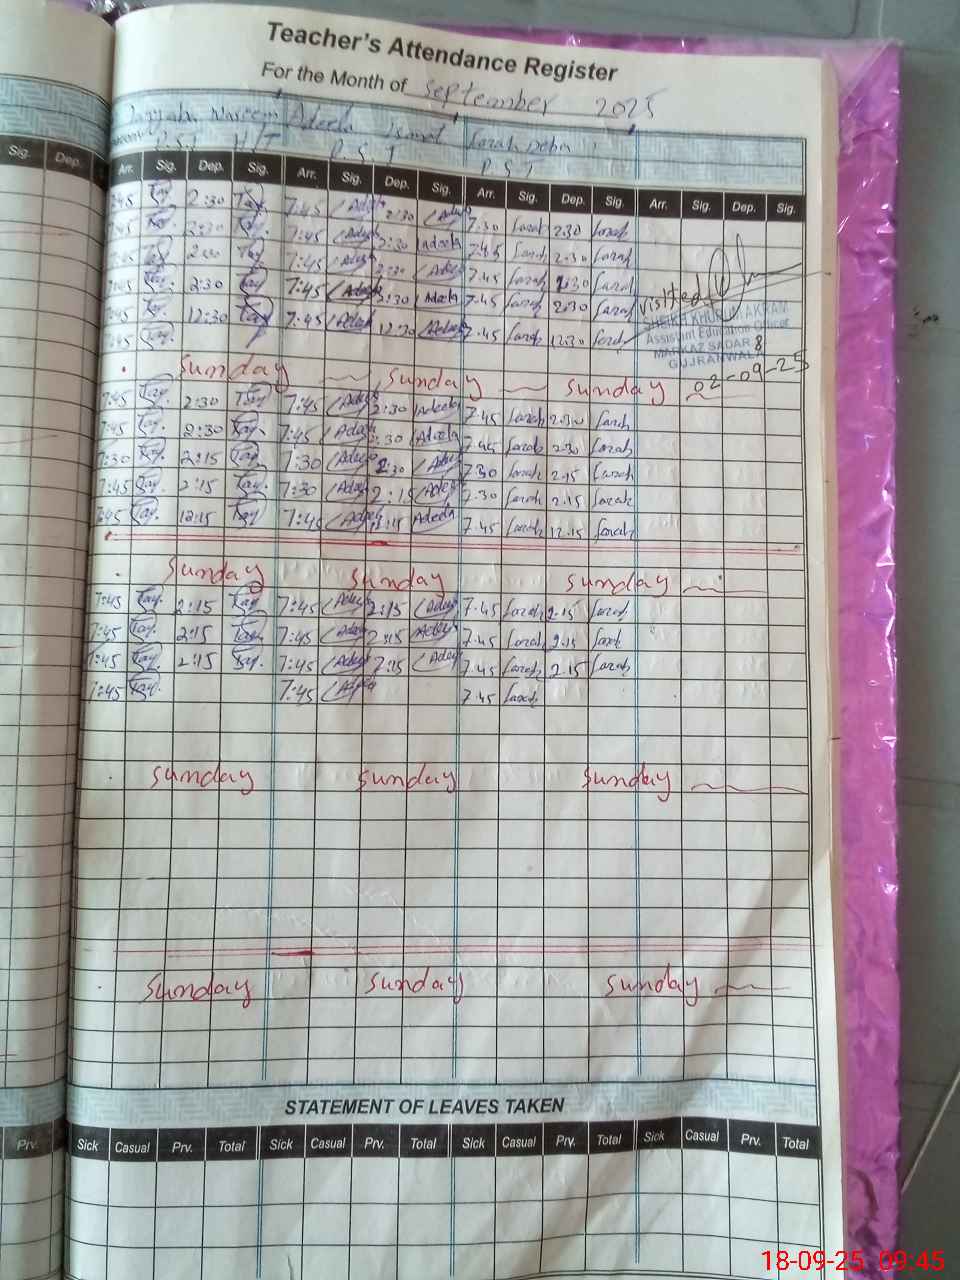 Teacher's Attendance Register
For the Month of September 2025
Naseem Adeela Ismat Farah Deba
P.S.T H/T P.S.T P.S.T
Sig. Dep. Arr. Sig. Dep. Sig. Arr. Sig. Dep. Sig. Arr. Sig. Dep. Sig. Arr. Sig. Dep. Sig.
7:45 Tay 2:30 Tay 7:45 Adeela 2:30 Adeela 7:30 Farah 2:30 Farah
7:45 Tay 2:30 Tay 7:45 Adeela 2:30 Adeela 7:45 Farah 2:30 Farah
7:45 Tay 2:30 Tay 7:45 Adeela 2:30 Adeela 7:45 Farah 2:30 Farah
7:45 Tay 2:30 Tay 7:45 Adeela 2:30 Adeela 7:45 Farah 2:30 Farah
7:45 Tay 12:30 Tay 7:45 Adeela 12:30 Adeela 7:45 Farah 12:30 Farah
7:45 Tay
visited
SHEIKH KHURAM AKRAM
Assistant Education Officer
MARKAZ SADAR 8
GUJRANWALA
02-09-25
Sunday Sunday Sunday
7:45 Tay 2:30 Tay 7:45 Adeela 2:30 Adeela 7:45 Farah 2:30 Farah
7:45 Tay 2:30 Tay 7:45 Adeela 2:30 Adeela 7:45 Farah 2:30 Farah
7:30 Tay 2:15 Tay 7:30 Adeela 2:30 Adeela 7:30 Farah 2.15 Farah
7:45 Tay 2:15 Tay 7:30 Adeela 2:15 Adeela 7:30 Farah 2.15 Farah
7:45 Tay 12:15 Tay 7:45 Adeela 12:15 Adeela 7.45 Farah 12.15 Farah
Sunday Sunday Sunday
7:45 Tay 2:15 Tay 7:45 Adeela 2:15 Adeela 7.45 Farah 2.15 Farah
7:45 Tay 2:15 Tay 7:45 Adeela 2:15 Adeela 7.45 Farah 2:15 Farah
7:45 Tay 2:15 Tay 7:45 Adeela 2:15 Adeela 7.45 Farah 2.15 Farah
7:45 Tay 7:45 Adeela 7.45 Farah
Sunday Sunday Sunday
Sunday Sunday Sunday
STATEMENT OF LEAVES TAKEN
Prv. Sick Casual Prv. Total Sick Casual Prv. Total Sick Casual Prv. Total Sick Casual Prv. Total
18-09-25 09:45